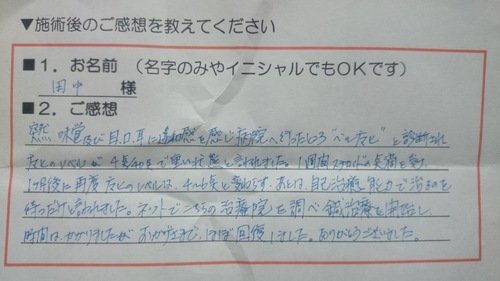 ▼施術後のご感想を教えてください
■1．お名前 （名字のみやイニシャルでもOKです）
田中 様
■2．ご感想
突然 味覚及び目、口、耳に違和感を感じ病院へ行ったところ"ベル麻ヒ"と診断され
麻ヒのレベルが 4点/40点で重い状態と言われました。1週間ステロイドの点滴を
1ヶ月後に再度 麻ヒのレベルは、4点と変わらず、あとは、自己治癒能力で治るのを
待つだけと言われました。ネットでこちらの治療院を調べ鍼治療を開始し、
時間は、かかりましたが おかげさまで、ほぼ回復しました。ありがとうございました。